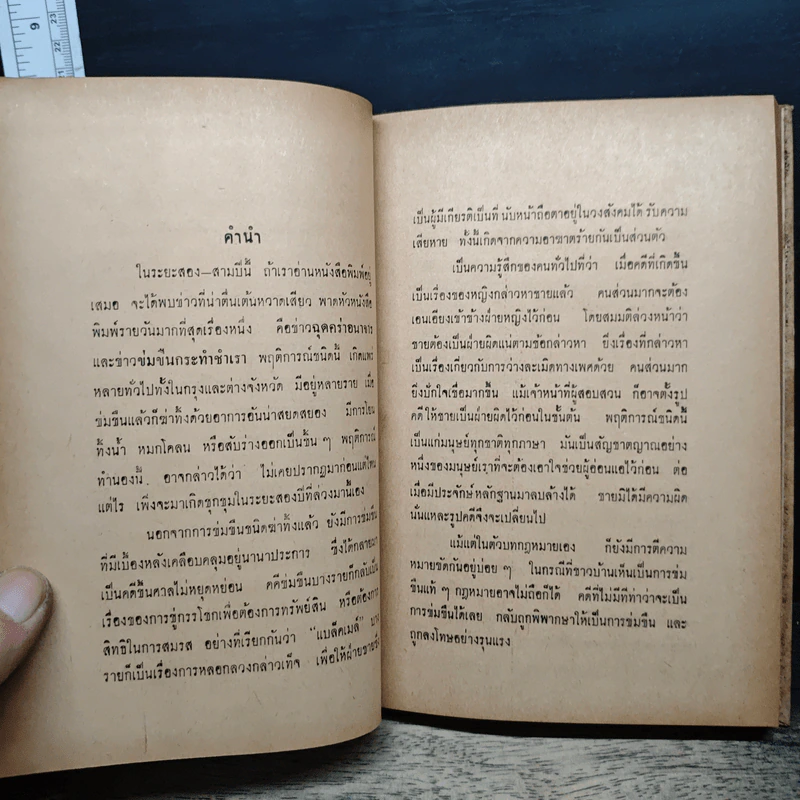 9
23
22
21
คำนำ
ในระยะสอง—สามปีนี้ ถ้าเราอ่านหนังสือพิมพ์อยู่
เสมอ จะได้พบข่าวที่น่าตื่นเต้นหวาดเสียว พาดหัวหนังสือ
พิมพ์รายวันมากที่สุดเรื่องหนึ่ง คือข่าวฉุดคร่าอนาจาร
และข่าวข่มขืนกระทำชำเรา พฤติการณ์ชนิดนี้ เกิดแพร่
หลายทั่วไปทั้งในกรุงและต่างจังหวัด มีอยู่หลายราย เมื่อ
ข่มขืนแล้วก็ฆ่าทิ้งด้วยอาการอันน่าสยดสยอง มีการโยน
ทิ้งน้ำ หมกโคลน หรือสับร่างออกเป็นชิ้น ๆ พฤติการณ์
ทำนองนี้ อาจกล่าวได้ว่า ไม่เคยปรากฏมาก่อนแต่ไหน
แต่ไร เพิ่งจะมาเกิดชุกชุมในระยะสองปีที่ล่วงมานี้เอง
นอกจากการข่มขืนชนิดฆ่าทิ้งแล้ว ยังมีการข่มขืน
ที่มีเบื้องหลังเคลือบคลุมอยู่นานาประการ ซึ่งได้กลายมา
เป็นคดีขึ้นศาลไม่หยุดหย่อน คดีข่มขืนบางรายก็กลับเป็น
เรื่องของการขู่กรรโชกเพื่อต้องการทรัพย์สิน หรือต้องการ
สิทธิในการสมรส อย่างที่เรียกกันว่า "แบล็คเมล์" บาง
รายก็เป็นเรื่องการหลอกลวงกล่าวเท็จ เพื่อให้ฝ่ายชายซึ่ง
เป็นผู้มีเกียรติเป็นที่ นับหน้าถือตาอยู่ในวงสังคมได้ รับความ
เสียหาย ทั้งนี้เกิดจากความอาฆาตร้ายกันเป็นส่วนตัว
เป็นความรู้สึกของคนทั่วไปที่ว่า เมื่อคดีที่เกิดขึ้น
เป็นเรื่องของหญิงกล่าวหาชายแล้ว คนส่วนมากจะต้อง
เอนเอียงเข้าข้างฝ่ายหญิงไว้ก่อน โดยสมมติล่วงหน้าว่า
ชายต้องเป็นฝ่ายผิดแน่ตามข้อกล่าวหา ยิ่งเรื่องที่กล่าวหา
เป็นเรื่องเกี่ยวกับการว่างละเมิดทางเพศด้วย คนส่วนมาก
ยิ่งปักใจเชื่อมากขึ้น แม้เจ้าหน้าที่ผู้สอบสวน ก็อาจตั้งรูป
คดี ให้ชายเป็นฝ่ายผิดไว้ก่อนในชั้นต้น พฤติการณ์ชนิดนี้
เป็นแก่มนุษย์ทุกชาติทุกภาษา มันเป็นสัญชาตญาณอย่าง
หนึ่งของมนุษย์เราที่จะต้องเอาใจช่วยผู้อ่อนแอไว้ก่อน ต่อ
เมื่อมีประจักษ์หลักฐานมาลบล้างได้ ชายมิได้มีความผิด
นั่นแหละรูปคดีจึงจะเปลี่ยนไป
แม้แต่ในตัวบทกฎหมายเอง ก็ยังมีการตีความ
หมายขัดกันอยู่บ่อย ๆ ในกรณีที่ชาวบ้านเห็นเป็นการข่ม
ขืนแท้ ๆ กฎหมายอาจไม่ถือก็ได้ คดีที่ไม่มีทีท่าว่าจะเป็น
การข่มขืนได้เลย กลับถูกพิพากษาให้เป็นการข่มขืน และ
ถูกลงโทษอย่างรุนแรง